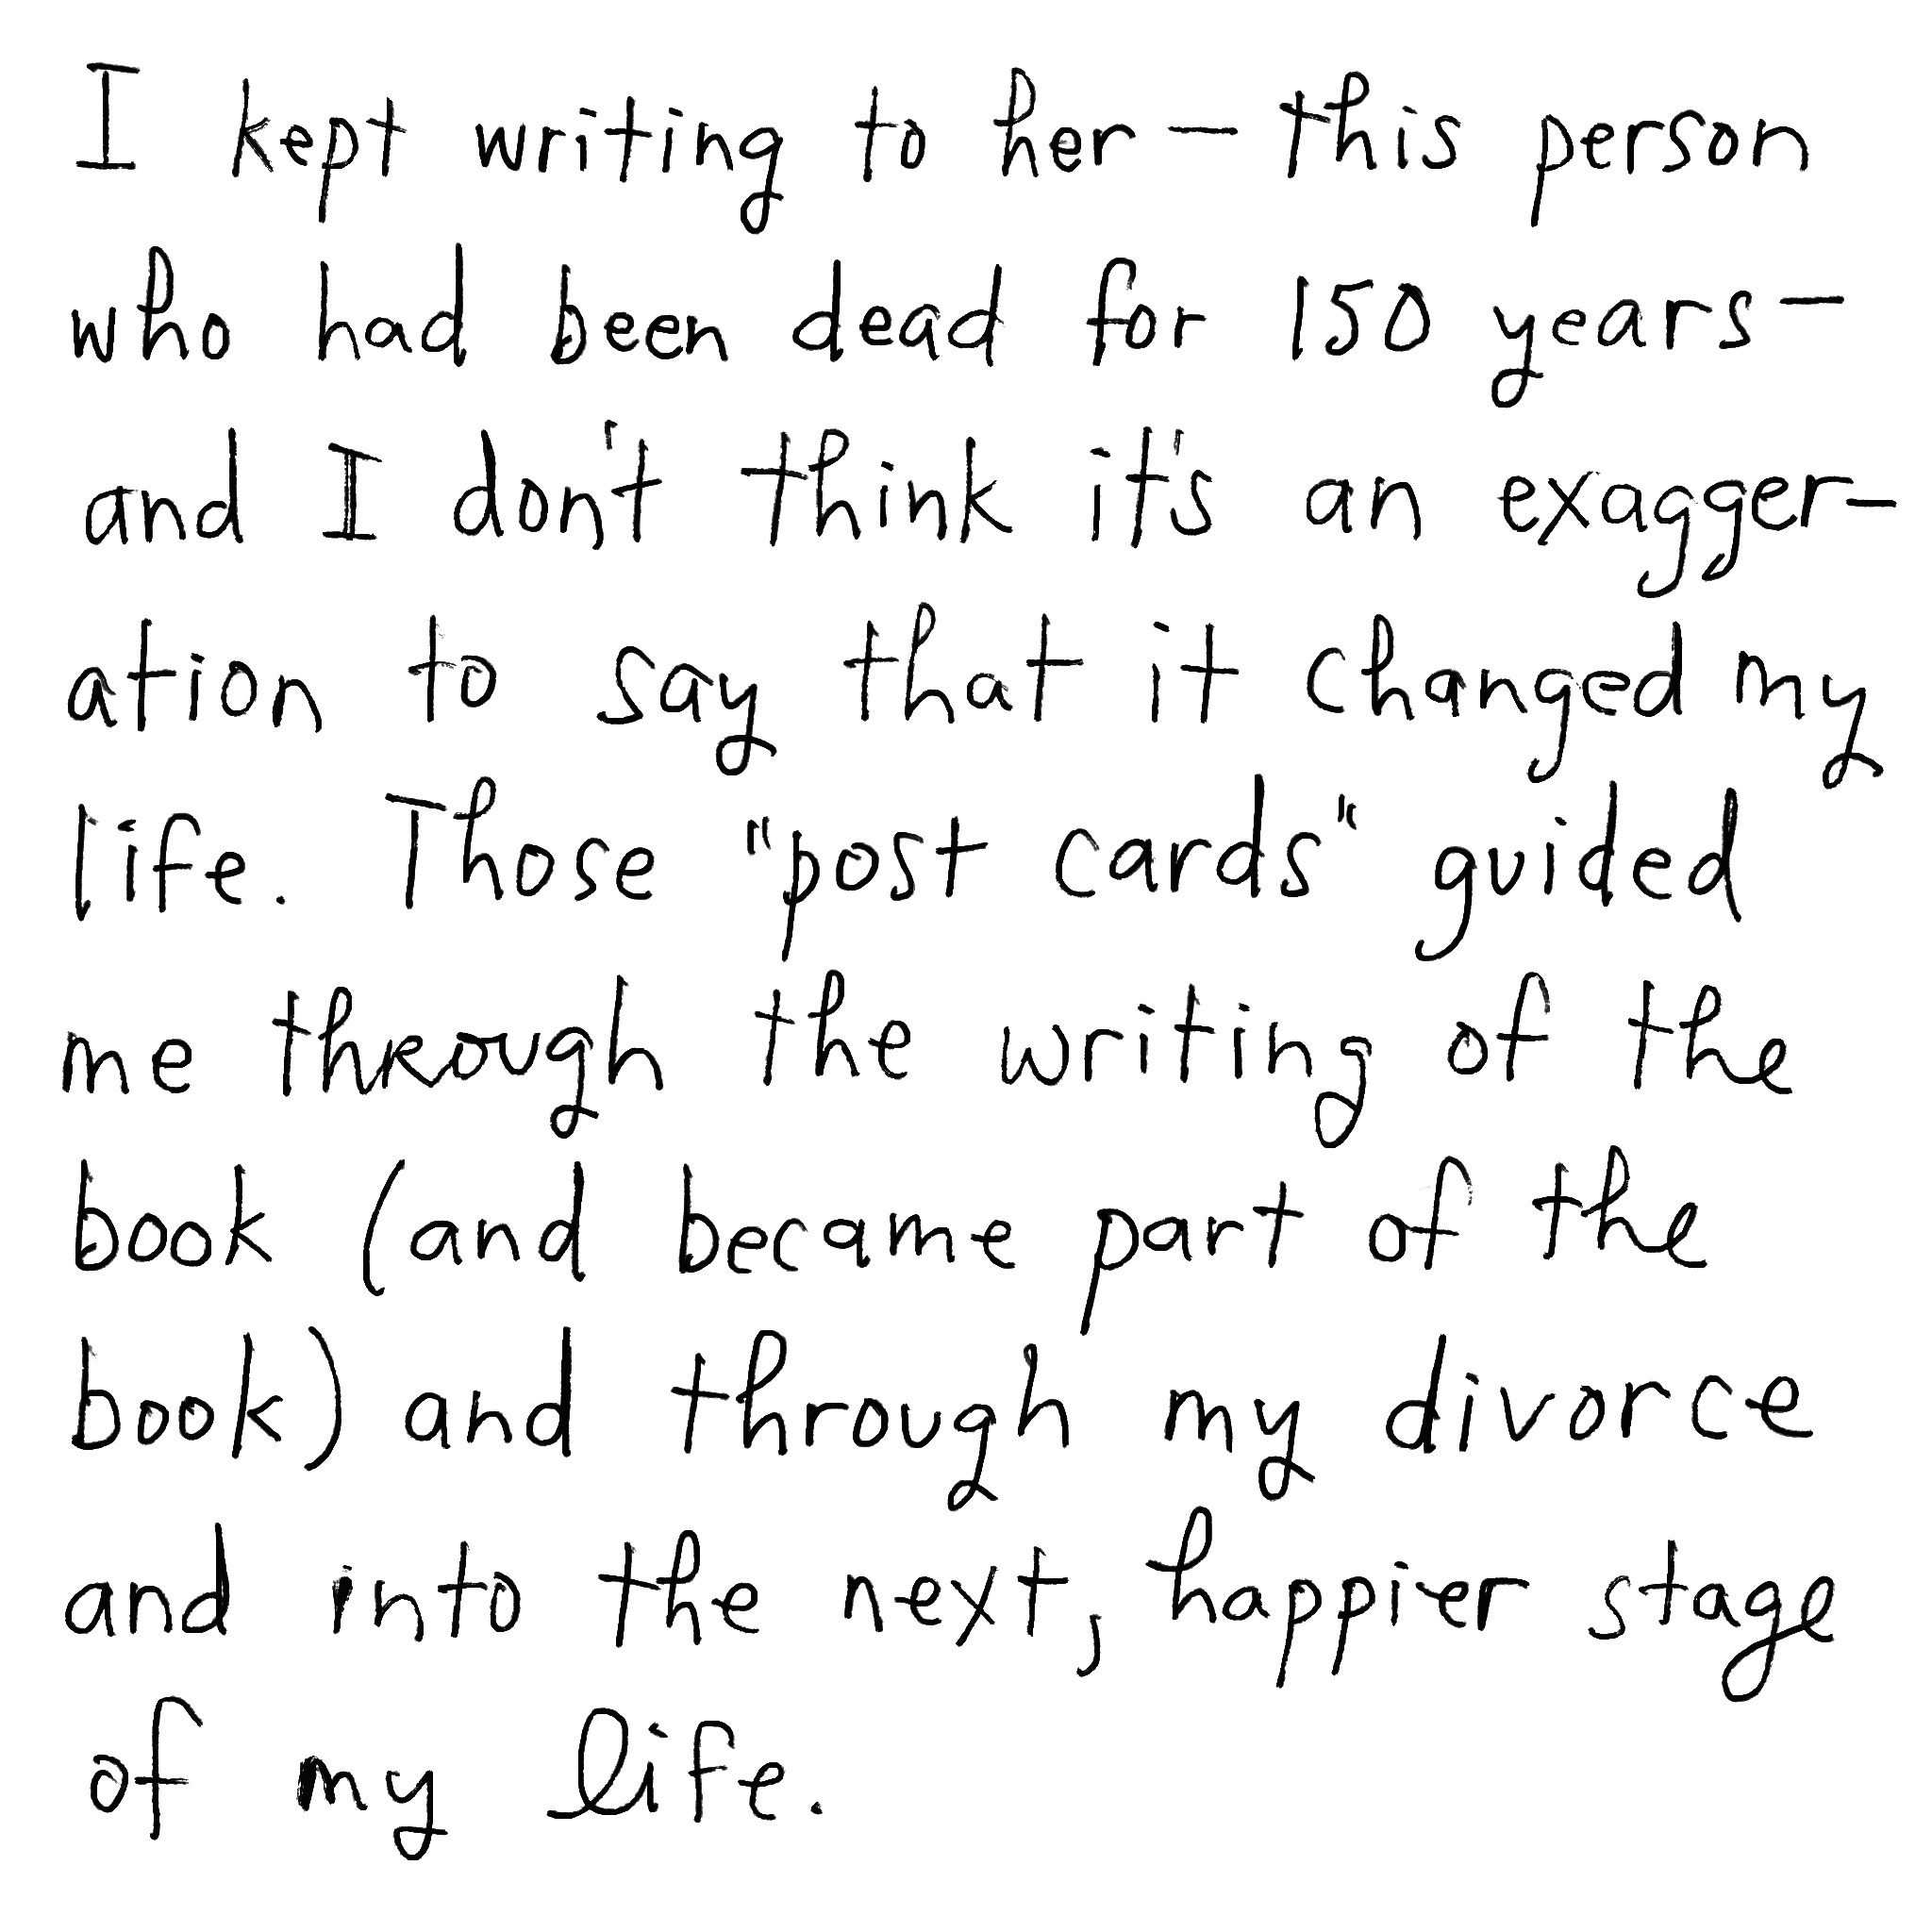 I kept writing to her — this person
who had been dead for 150 years —
and I don't think it's an exagger-
ation to say that it changed my
life. Those "post cards" guided
me through the writing of the
book (and became part of the
book) and through my divorce
and into the next, happier stage
of my life.